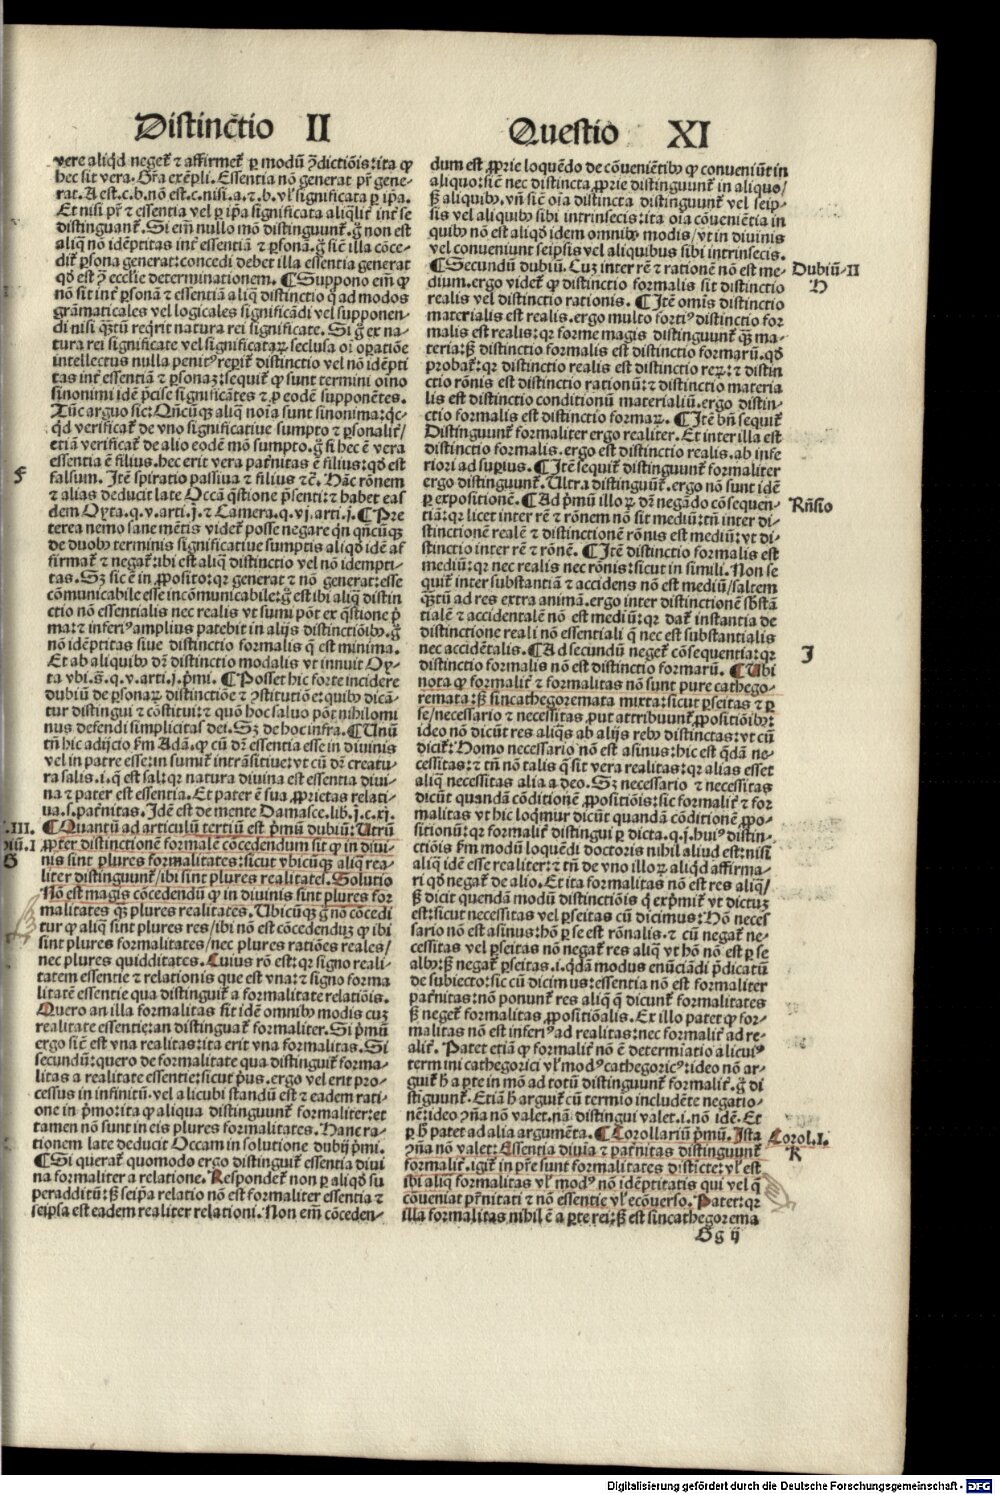 Distinctio II
Questio XI
vere aliqd negeť ⁊ affirmeť ꝑ modū ꝯdictiōis: ita ꝙ
hec sit vera. Gr̄a exēpli. Essentia nō generat pr̄ gene-
rat. A est.c.b.nō est.c.nisi.a.⁊.b.vl̓ significata ꝑ ip̄a.
Et nisi pr̄ ⁊ essentia vel ꝑ ip̄a significata aliqlit̓ int̓ se
distinguanť. Si em̄ nullo mō distinguunť. g̊ non est
aliq̄ nō idēptitas int̓ essentiā ⁊ ꝑsonā. g̊ sic̄ illa cōce-
diť ꝑsona generat: concedi debet illa essentia generat
qd̓ est ꝯ̄ ecclie determinationem. ¶ Suppono em̄ ꝙ
nō sit int̓ ꝑsonā ⁊ essentiā aliq̄ distinctio q̄ ad modos
grāmaticales vel logicales significādi vel supponen-
di nisi qꝫtū reqrit natura rei significate. Si g̊ ex na-
tura rei significate vel significataꝝ seclusa oī oꝑatiōe
intellectus nulla penit⁹ reꝑiť distinctio vel nō idēpti
tas int̓ essentiā ⁊ ꝑsonaꝫ: sequiť ꝙ sunt termini oīno
sinonimi idē p̄cise significātes ⁊ ꝓ eodē supponētes.
Tūc arguo sic: Qn̄cūqꝫ aliq̄ noīa sunt sinonima: qc-
qd̓ verificať de vno significatiue sumpto ⁊ ꝑsonalit̓/
etiā verificať de alio eodē mō sumpto. g̊ si hec ē vera
essentia ē filius. hec erit vera pat̓nitas ē filius: qd̓ est
falsum. Itē spiratio passiua ⁊ filius ⁊c̄. Hāc rōnem
⁊ alias deducit late Occā q̄stione p̄senti: ⁊ habet eas
dem Oyta.q.v.arti.j.⁊ Camera.q.vj.arti.j. ¶ Pre
terea nemo sane mētis videť posse negare qn̄ qn̄cūqꝫ
de duobꝰ terminis significatiue sumptis aliqd̓ idē af
firmať ⁊ negať: ibi est aliq̄ distinctio vel nō idempti-
tas. Sꝫ sic ē in ꝓposito: qꝛ generat ⁊ nō generat: esse
cōmunicabile esse incōmunicabile: g̊ est ibi aliq̄ distin
ctio nō essentialis nec realis vt sumi pōt ex q̄stione p̄
ma: ⁊ inferi⁹ amplius patebit in alijs distinctiōibꝰ. g̊
nō idēptitas siue distinctio formalis q̄ est minima.
Et ab aliquibꝰ dr̄ distinctio modalis vt innuit Oy-
ta vbi.s̄.q.v.arti.j.p̄mi. ¶ Posset hic forte incidere
dubiū de ꝑsonaꝝ distinctiōe ⁊ ꝯstitutiōe: quibꝰ dicā-
tur distingui ⁊ cōstitui: ⁊ quō hoc saluo pōt nihilomi
nus defendi simplicitas dei. Sꝫ de hoc infra. ¶ Unū
tn̄ hic adijcio ẜm Adā. ꝙ cū dr̄ essentia esse in diuinis
vel in patre esse: in sumiť intrāsitiue: vt cū dr̄ creatu-
ra salis.i.q̄ est sal: qꝛ natura diuina est essentia diui-
na ⁊ pater est essentia. Et pater ē sua ꝓprietas relati-
ua.s.pat̓nitas. Idē est de mente Damasce.lib.j.c.xj.
¶ Quantū ad articulū tertiū est p̄mū dubiū: Utrū
ꝓpter distinctionē formalē cōcedendum sit ꝙ in diui-
nis sint plures formalitates: sicut vbicūqꝫ aliq̄ rea-
liter distinguunť/ibi sunt plures realitates. Solutio
Nō est magis cōcedendū ꝙ in diuinis sint plures for
malitates qꝫ plures realitates. Ubicūqꝫ g̊ nō cōcedi
tur ꝙ aliq̄ sint plures res/ibi nō est cōcedendūꝫ ꝙ ibi
sint plures formalitates/nec plures ratiōes reales/
nec plures quidditates. Cuius rō est: qꝛ signo reali-
tatem essentie ⁊ relationis que est vna: ⁊ signo forma
litatē essentie qua distinguiť a formalitate relatiōis.
Quero an illa formalitas sit idē omnibꝰ modis cuꝫ
realitate essentie: an distinguať formaliter. Si p̄mū
ergo sic̄ est vna realitas: ita erit vna formalitas. Si
secundū: quero de formalitate qua distinguiť forma-
litas a realitate essentie: sicut p̄us. ergo vel erit pro-
cessus in infinitū. vel alicubi standū est ⁊ eadem rati-
one in p̄mo: ita ꝙ aliqua distinguunť formaliter: et
tamen nō sunt in eis plures formalitates. Hanc ra-
tionem late deducit Occam in solutione dubij p̄mi.
¶ Si querať quomodo ergo distinguiť essentia diui
na formaliter a relatione. Respondeť non ꝑ aliqd̓ su
peradditū: sꝫ seipa relatio nō est formaliter essentia ⁊
seipsa est eadem realiter relationi. Non em̄ cōceden-
F
.III.
biū.I
G
dum est ꝓprie loquēdo de cōueniētibꝰ ꝙ conueniūt in
aliquo: sic̄ nec distincta ꝓprie distinguunť in aliquo/
sꝫ aliquibꝰ. vn̄ sic̄ oīa distincta distinguunť vel seip-
sis vel aliquibꝰ sibi intrinsecis: ita oīa cōuenientia in
quibꝰ nō est aliqd̓ idem omnibꝰ modis/vt in diuinis
vel conueniunt seipsis vel aliquibus sibi intrinsecis.
¶ Secundū dubiū. Cuꝫ inter rē ⁊ rationē nō est me-
dium. ergo videť ꝙ distinctio formalis sit distinctio
realis vel distinctio rationis. ¶ Itē omīs distinctio
materialis est realis. ergo multo forti⁹ distinctio for
malis est realis: qꝛ forme magis distinguunť qꝫ ma-
teria: sꝫ distinctio formalis est distinctio formarū. qd̓
probať: qꝛ distinctio realis est distinctio reꝝ: ⁊ distin
ctio rōnis est distinctio rationū: ⁊ distinctio materia
lis est distinctio conditionū materialiū. ergo distin-
ctio formalis est distinctio formaꝝ. ¶ Itē bn̄ sequiť
Distinguunť formaliter ergo realiter. Et inter illa est
distinctio formalis. ergo est distinctio realis. ab infe
riori ad suꝑius. ¶ Itē sequiť distinguunť formaliter
ergo distinguunť. Ultra distinguūť. ergo nō sunt idē
ꝑ expositionē. ¶ Ad p̄mū illoꝝ dr̄ negādo cōsequen-
tiā: qꝛ licet inter rē ⁊ rōnem nō sit mediū: tn̄ inter di-
stinctionē realē ⁊ distinctionē rōnis est mediū: vt di-
stinctio inter rē ⁊ rōnē. ¶ Itē distinctio formalis est
mediū: qꝛ nec realis nec rōnis: sicut in simili. Non se
quiť inter substantiā ⁊ accidens nō est mediū/saltem
qꝫtū ad res extra animā. ergo inter distinctionē sb̄stā
tialē ⁊ accidentalē nō est mediū: qꝛ dať instantia de
distinctione reali nō essentiali q̄ nec est substantialis
nec accidētalis. ¶ Ad secundū negeť cōsequentia: qꝛ
distinctio formalis nō est distinctio formarū. ¶ Ubi
nota ꝙ formalit̓ ⁊ formalitas nō sunt pure cathego-
remata: sꝫ sincathegoremata mixta: sicut ꝑseitas ⁊ ꝑ
se/necessario ⁊ necessitas ꝓut attribuunť ꝓpositiōibꝰ:
ideo nō dicūt res aliqs ab alijs rebꝰ distinctas: vt cū
diciť: Homo necessario nō est asinus: hic est q̄dā ne-
cessitas: ⁊ tn̄ nō talis q̄ sit vera realitas: qꝛ alias esset
aliq̄ necessitas alia a deo. Sꝫ necessario ⁊ necessitas
dicūt quandā cōditionē ꝓpositiōis: sic formalit̓ ⁊ for
malitas vt hic loqmur dicūt quandā cōditionē ꝓpo-
sitionū: qꝛ formalit̓ distingui ꝑ dicta.q.j.hui⁹ distin-
ctiōis ẜm modū loquēdi doctoris nihil aliud est: nisi
aliq̄ idē esse realiter: ⁊ tn̄ de vno illoꝝ aliqd̓ affirma-
ri qd̓ negať de alio. Et ita formalitas nō est res aliq̄/
sꝫ dicit quendā modū distinctiōis q̄ exp̄mit̓ vt dictuꝫ
est: sicut necessitas vel ꝑseitas cū dicimus: Hō neces
sario nō est asinus: hō ꝑ se est rōnalis. ⁊ cū negať ne-
cessitas vel ꝑseitas nō negať res aliq̄ vt hō nō est ꝑ se
albꝰ: sꝫ negať ꝑseitas.i.q̄dā modus enūciādi p̄dicatū
de subiecto: sic cū dicimus: essentia nō est formaliter
pat̓nitas: nō ponunť res aliq̄ q̄ dicunť formalitates
sꝫ negeť formalitas ꝓpositiōalis. Ex illo patet ꝙ for-
malitas nō est inferi⁹ ad realitas: nec formalit̓ ad re-
alit̓. Patet etiā ꝙ formalit̓ nō ē determiatio alicui⁹
termini cathegorici vl̓ mod⁹ cathegoric⁹: ideo nō ar-
guiť h̄ a ꝑte in mō ad totū distinguunť formalit̓. g̊ di
stiguunť. Etiā h̄ arguiť cū termio includēte negatio-
nē: ideo ꝯn̄a nō valet. nā distingui valet.i.nō idē. Et
ꝑ h̄ patet ad alia argumēta. ¶ Corollariū p̄mū. Ista
ꝯn̄a nō valet: Essentia diuīa ⁊ pat̓nitas distinguunť
formalit̓. igiť in pr̄e sunt formalitates distīcte: vl̓ est
ibi aliq̄ formalitas vl̓ mod⁹ nō idēptitatis qui vel q̄
cōueniat pr̄nitati ⁊ nō essentie vl̓ ecōuerso. Pater: qꝛ
illa formalitas nihil ē a ꝑte rei: sꝫ est sincathegorema
Dubiū-II
H
Rn̄sio
J
Corol.I.
K
Gg ij
Digitalisierung gefördert durch die Deutsche Forschungsgemeinschaft - DFG